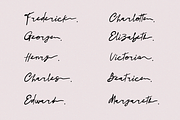 Frederick.
George.
Henry.
Charles.
Edward.
Charlotte.
Elizabeth.
Victoria.
Beatrice.
Margareth.